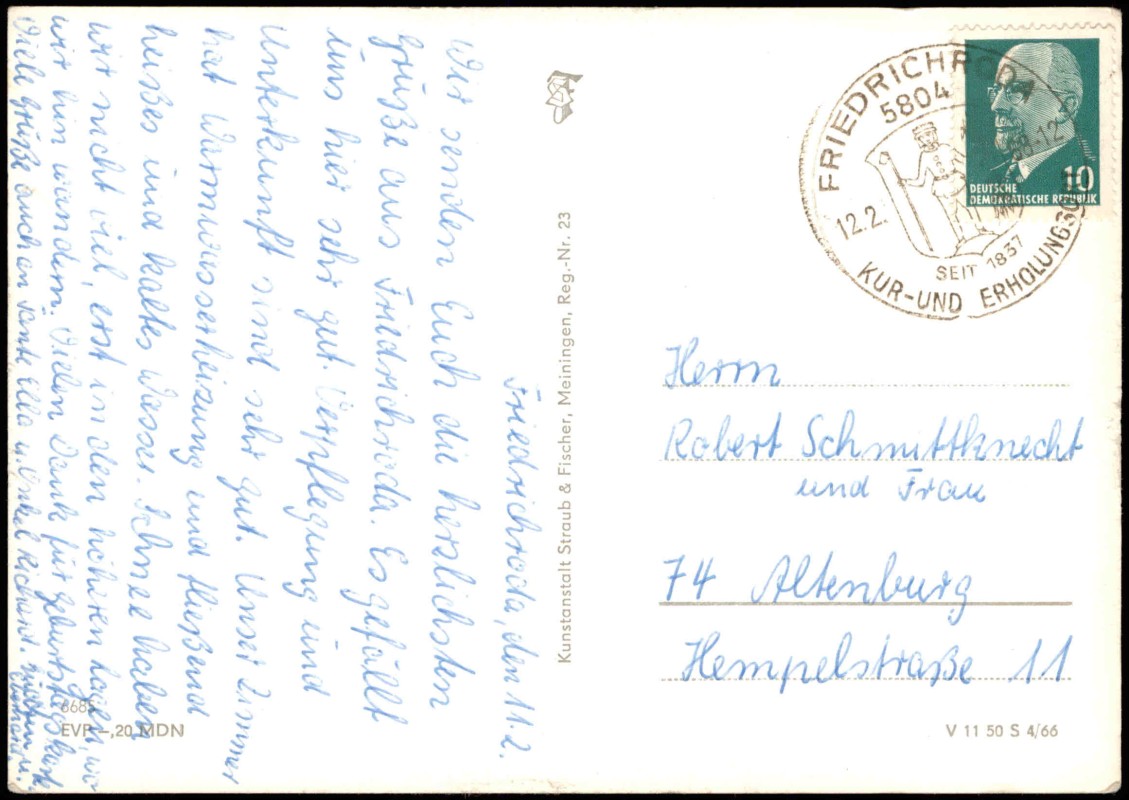 Friedrichroda, den 11.2.
Wir senden Euch die herzlichsten
Grüße aus Friedrichroda. Es gefällt
uns hier sehr gut. Verpflegung und
Unterkunft sind sehr gut. Unser Zimmer
hat Warmwasserheizung und fließend
heißes und kaltes Wasser. Schnee haben
wir nicht viel, erst in den höheren Lagen, wo
wir hin wandern. Vielen Dank für Geburtstagskarte
Viele Grüße auch an Tante Ella u. Onkel Richard.
8685
EVP -,20 MDN
Kunstanstalt Straub & Fischer, Meiningen, Reg.-Nr. 23
FRIEDRICHRODA
5804
12.2.
68-12
SEIT 1837
KUR-UND ERHOLUNGSORT
10
DEUTSCHE
DEMOKRATISCHE REPUBLIK
Herrn
Robert Schmittknecht
und Frau
74 Altenburg
Hempelstraße 11
V 11 50 S 4/66